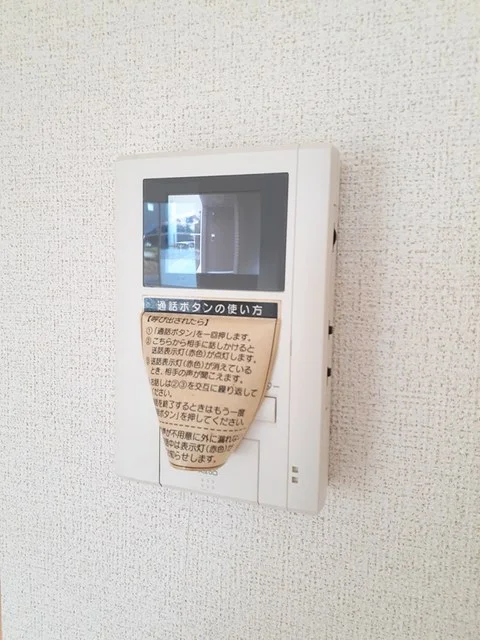 通話ボタンの使い方
【呼び出されたら】
①「通話ボタン」を一回押します。
②こちらから相手に話しかけると
送話表示灯(赤色)が点灯します。
③送話表示灯(赤色)が消えている
とき、相手の声が聞こえます。
お話しは②③を交互に繰り返して
ください。
を終了するときはもう一度
ボタン」を押してください。
が不用意に外に漏れな
中は表示灯(赤色)が
らせします。